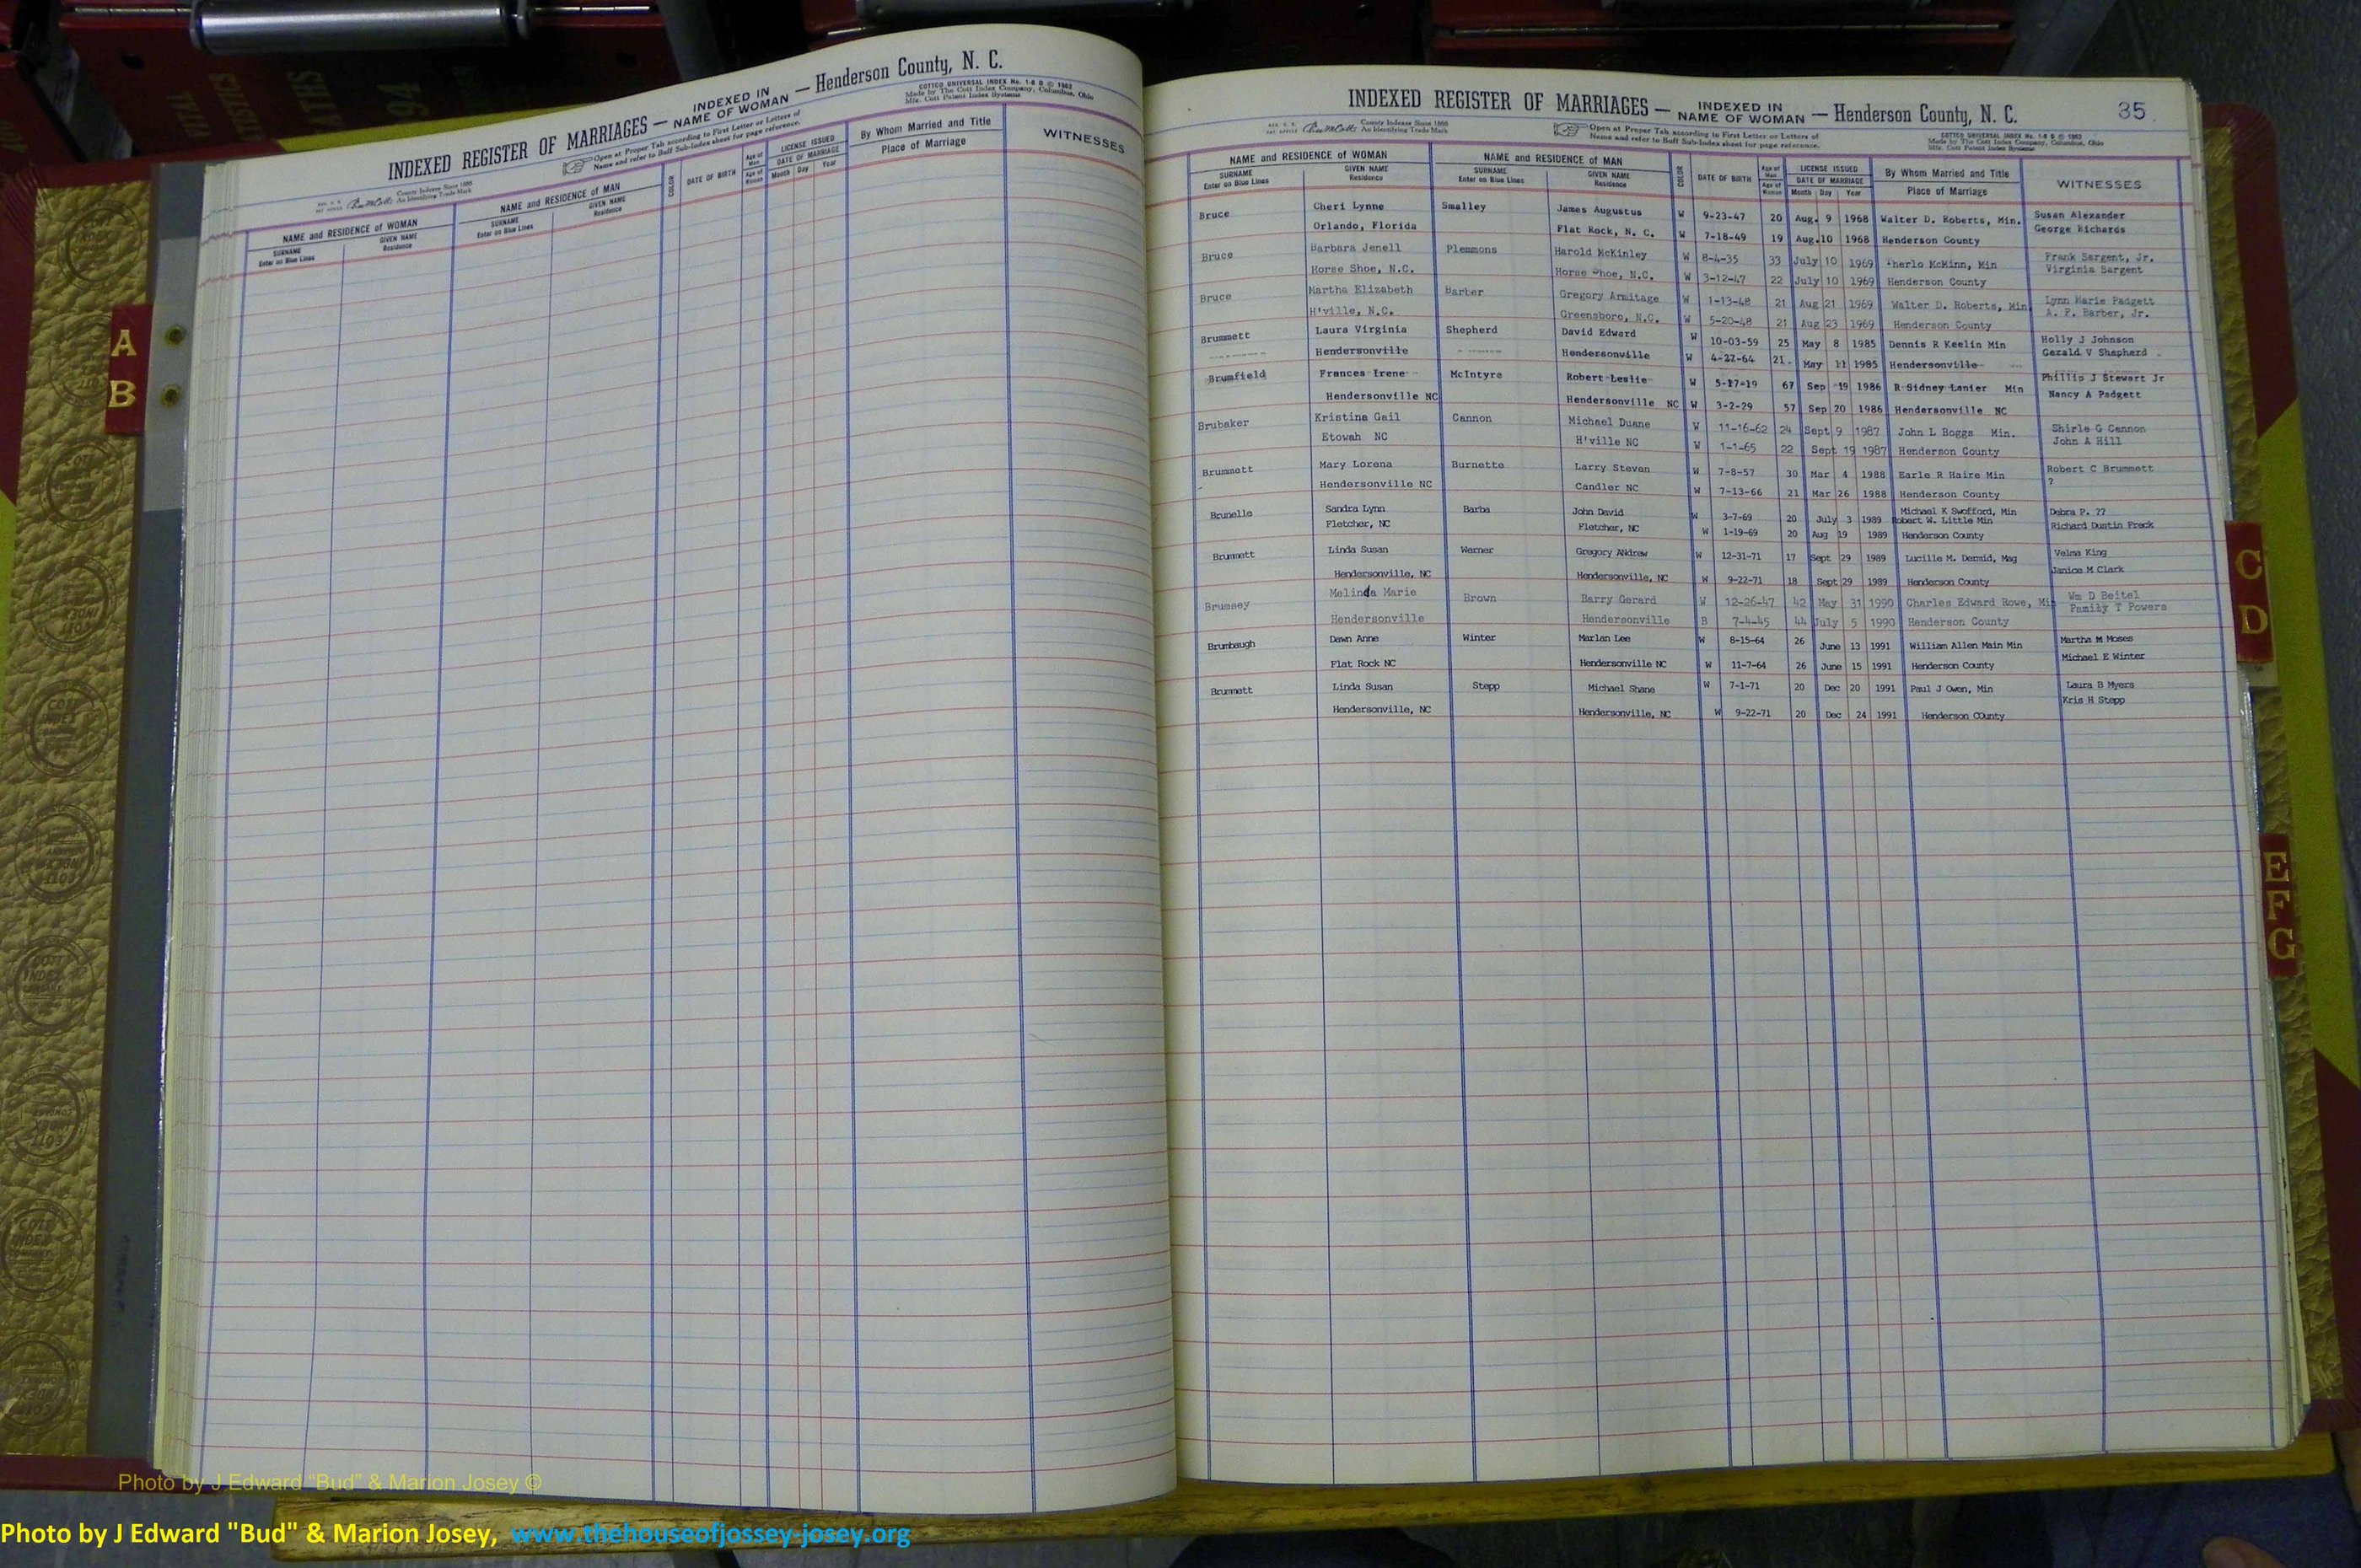 INDEXED REGISTER OF MARRIAGES — INDEXED IN NAME OF WOMAN — Henderson County, N. C.
COTTCO UNIVERSAL INDEX No. 1-8 D © 1963
Made by The Cott Index Company, Columbus, Ohio
Mfr. Cott Patent Index Systems
County Indexes Since 1888
An Identifying Trade Mark
Open at Proper Tab according to First Letter or Letters of
Name and refer to Buff Sub-Index sheet for page reference.
NAME and RESIDENCE OF WOMAN
SURNAME
Enter on Blue Lines
GIVEN NAME
Residence
NAME and RESIDENCE OF MAN
SURNAME
Enter on Blue Lines
GIVEN NAME
Residence
COLOR
DATE OF BIRTH
Age of Man
Age of Woman
LICENSE ISSUED
DATE OF MARRIAGE
Month Day Year
By Whom Married and Title
Place of Marriage
WITNESSES
A
B
INDEXED REGISTER OF MARRIAGES — INDEXED IN NAME OF WOMAN — Henderson County, N. C. 35
County Indexes Since 1888
An Identifying Trade Mark
Open at Proper Tab according to First Letter or Letters of
Name and refer to Buff Sub-Index sheet for page reference.
COTTCO UNIVERSAL INDEX No. 1-8 D © 1963
Made by The Cott Index Company, Columbus, Ohio
Mfr. Cott Patent Index Systems
NAME and RESIDENCE OF WOMAN
SURNAME
Enter on Blue Lines
GIVEN NAME
Residence
NAME and RESIDENCE OF MAN
SURNAME
Enter on Blue Lines
GIVEN NAME
Residence
COLOR
DATE OF BIRTH
Age of Man
Age of Woman
LICENSE ISSUED
DATE OF MARRIAGE
Month Day Year
By Whom Married and Title
Place of Marriage
WITNESSES
Bruce Cheri Lynne Smalley James Augustus W 9-23-47 20 Aug. 9 1968 Walter D. Roberts, Min. Susan Alexander
Orlando, Florida Flat Rock, N. C. W 7-18-49 19 Aug.10 1968 Henderson County George Richards
Bruce Barbara Jenell Plemmons Harold McKinley W 8-4-35 33 July 10 1969 herlo McMinn, Min Frank Sargent, Jr.
Horse Shoe, N.C. Horse Shoe, N.C. W 3-12-47 22 July 10 1969 Henderson County Virginia Sargent
Bruce Martha Elizabeth Barber Gregory Armitage W 1-13-48 21 Aug 21 1969 Walter D. Roberts, Min Lynn Marie Padgett
H'ville, N.C. Greensboro, N.C. W 5-20-48 21 Aug 23 1969 Henderson County A. F. Barber, Jr.
Brummett Laura Virginia Shepherd David Edward W 10-03-59 25 May 8 1985 Dennis R Keelin Min Holly J Johnson
Hendersonville Hendersonville W 4-27-64 21. May 11 1985 Hendersonville Gerald V Shepherd
Brumfield Frances Irene McIntyre Robert Leslie W 5-17-19 67 Sep 19 1986 R Sidney Lanier Min Phillip J Stewart Jr
Hendersonville NC Hendersonville NC W 3-2-29 57 Sep 20 1986 Hendersonville NC Nancy A Padgett
Brubaker Kristina Gail Cannon Michael Duane W 11-16-62 24 Sept 9 1987 John L Boggs Min. Shirle G Cannon
Etowah NC H'ville NC W 1-1-65 22 Sept 19 1987 Henderson County John A Hill
Brummett Mary Lorena Burnette Larry Steven W 7-8-57 30 Mar 4 1988 Earle R Haire Min Robert C Brummett
Hendersonville NC Candler NC W 7-13-66 21 Mar 26 1988 Henderson County ?
Brunelle Sandra Lynn Barba John David W 3-7-69 20 July 3 1989 Michael K Swofford, Min Robert W. Little Min Debra P. ??
Fletcher, NC Fletcher, NC W 1-19-69 20 Aug 19 1989 Henderson County Richard Dustin Freck
Brummett Linda Susan Warner Gregory Andrew W 12-31-71 17 Sept 29 1989 Lucille M. Dermid, Mag Velma King
Hendersonville, NC Hendersonville, NC W 9-22-71 18 Sept 29 1989 Henderson County Janice M Clark
Brumsey Melinda Marie Brown Barry Gerard W 12-26-47 42 May 31 1990 Charles Edward Rowe, Min Wm D Beitel
Hendersonville Hendersonville B 7-4-45 44 July 5 1990 Henderson County Family T Powers
Brumbaugh Dawn Anne Winter Marlan Lee W 8-15-64 26 June 13 1991 William Allen Main Min Martha M Moses
Flat Rock NC Hendersonville NC W 11-7-64 26 June 15 1991 Henderson County Michael E Winter
Brummett Linda Susan Stepp Michael Shane W 7-1-71 20 Dec 20 1991 Paul J Owen, Min Laura B Myers
Hendersonville, NC Hendersonville, NC W 9-22-71 20 Dec 24 1991 Henderson COunty Kris H Stepp
C
D
E
F
G
Photo by J Edward "Bud" & Marion Josey ©
Photo by J Edward "Bud" & Marion Josey, www.thehouseofjossey-josey.org